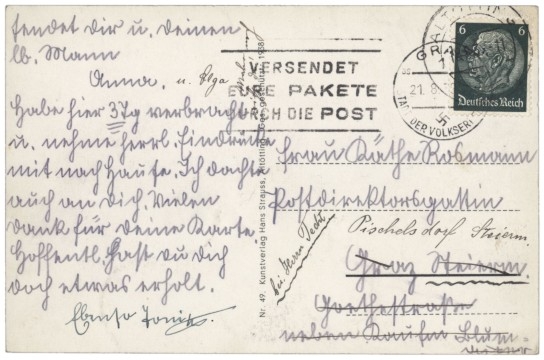 sendet dir u. deinen
lb. Mann
Anna. u. Olga
Habe hier 3 Tg verbracht
u. nehme herrl. Eindrücke
mit nach Hause. Ich dachte
auch an dich. Vielen
dank für deine Karte.
Hoffentl. hast du dich
doch etwas erholt.
Ebenso
Nr. 49. Kunstverlag Hans Strauss, Altötting. Ges. geschützt 1938
VERSENDET
EURE PAKETE
DURCH DIE POST
ALTÖTTING
GRAZ
21. 8.
TAG DER VOLKSERHEBUNG
6 6
Deutsches Reich
Frau Käthe Rosmann
Postdirektorsgattin
Pischelsdorf Steierm.
bei Herrn
Graz Steierm.
Goethestraße
neben Kaufm. Blum-